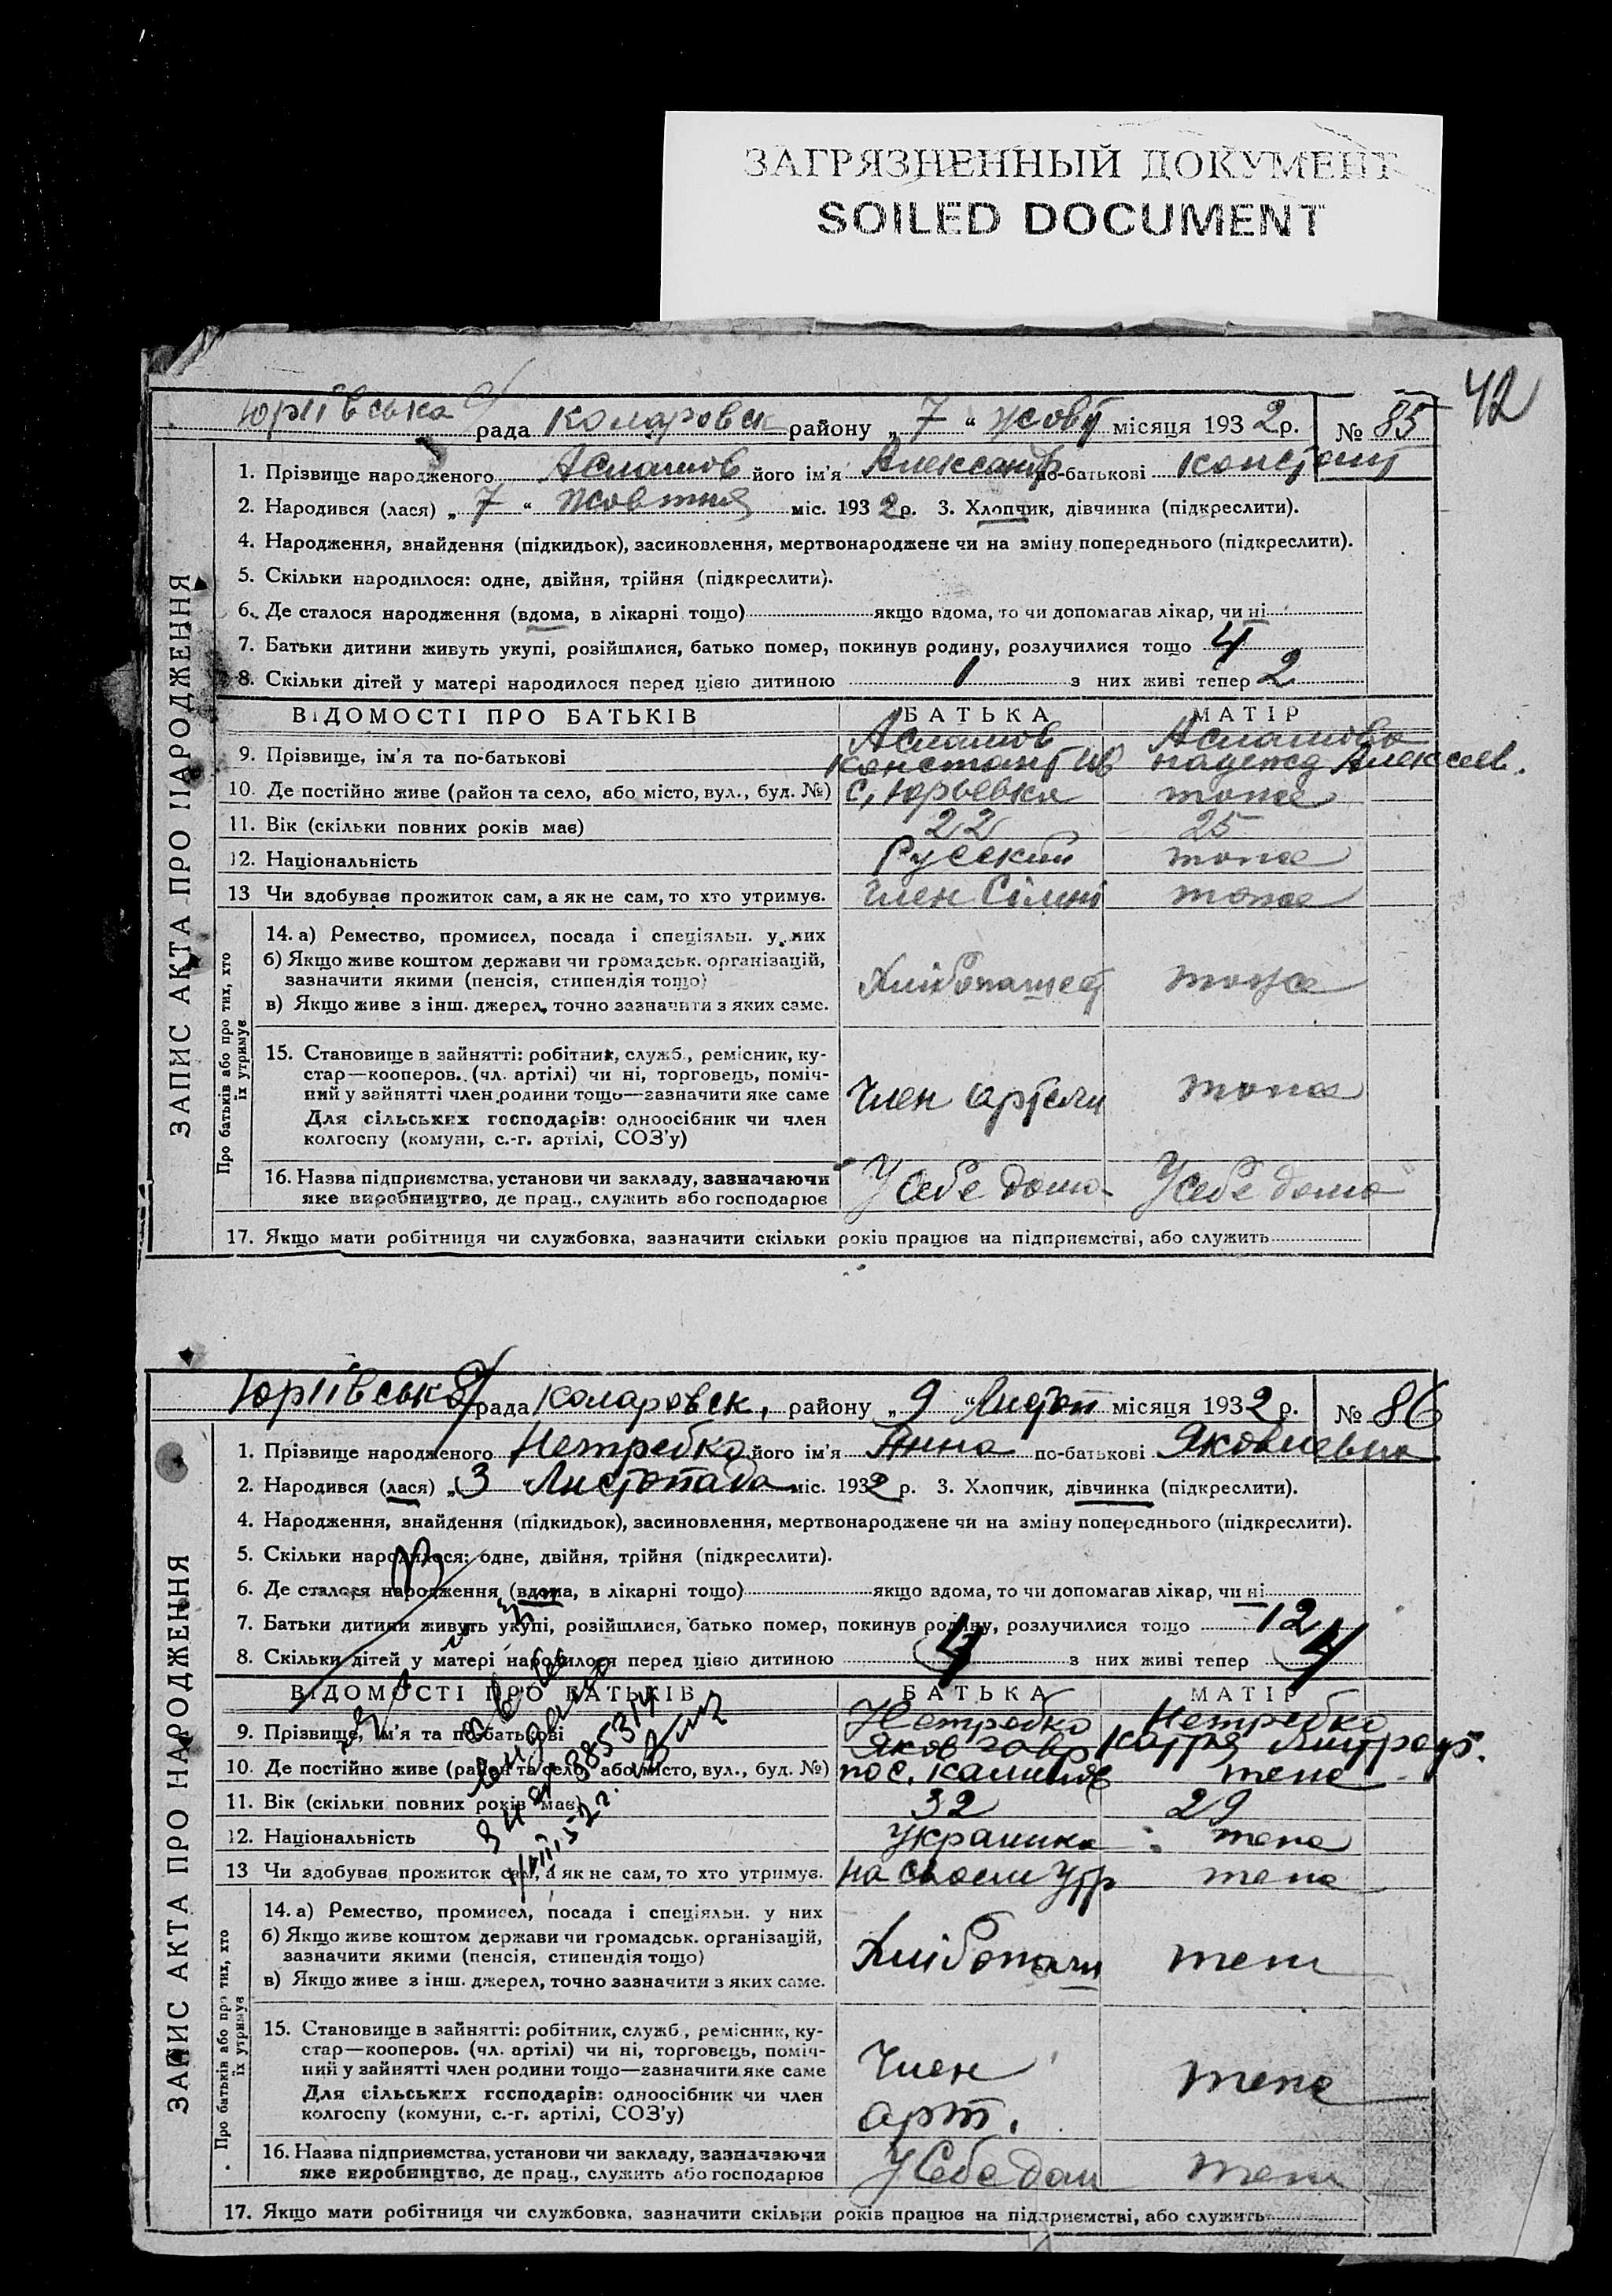 ЗАГРЯЗНЕННЫЙ ДОКУМЕНТ
SOILED DOCUMENT
42
Юріївська рада Коларовск району „7“ жовт місяця 1932р. № 85
ЗАПИС АКТА ПРО НАРОДЖЕННЯ
1. Прізвище народженого Асмашов його ім'я Александр по-батькові Констант
2. Народився (лася) „7“ Жовтня міс. 1932р. 3. Хлопчик, дівчинка (підкреслити).
4. Народження, знайдення (підкидьок), засиновлення, мертвонароджене чи на зміну попереднього (підкреслити).
5. Скільки народилося: одне, двійня, трійня (підкреслити).
6. Де сталося народження (вдома, в лікарні тощо) якщо вдома, то чи допомагав лікар, чи ні
7. Батьки дитини живуть укупі, розійшлися, батько помер, покинув родину, розлучилися тощо 4
8. Скільки дітей у матері народилося перед цією дитиною 1 з них живі тепер 2
ВІДОМОСТІ ПРО БАТЬКІВ БАТЬКА МАТІР
Асмашов Асмашова
9. Прізвище, ім'я та по-батькові Констант Ив Надежд Алексеев.
10. Де постійно живе (район та село, або місто, вул., буд. №) с, Юрьевка тоже
11. Вік (скільки повних років має) 22 25
12. Національність Русский тоже
13 Чи здобуває прожиток сам, а як не сам, то хто утримує. член Сімні тоже
Про батьків або про тих, хто
їх утримує
14. а) Ремество, промисел, посада і спеціяльн. у них
б) Якщо живе коштом держави чи громадськ. організацій,
зазначити якими (пенсія, стипендія тощо) Хлібопашец тоже
в) Якщо живе з інш. джерел, точно зазначити з яких саме.
15. Становище в зайнятті: робітник, служб., ремісник, ку-
стар—кооперов. (чл. артілі) чи ні, торговець, поміч-
ний у зайнятті член родини тощо—зазначити яке саме Член артели тоже
Для сільських господарів: одноосібник чи член
колгоспу (комуни, с.-г. артілі, СОЗ'у)
16. Назва підприємства, установи чи закладу, зазначаючи У себе дома У себе дома
яке виробництво, де прац., служить або господарює
17. Якщо мати робітниця чи службовка, зазначити скільки років працює на підприємстві, або служить
Юріївська рада Коларовск. району „9“ Листоп місяця 1932р. № 86
ЗАПИС АКТА ПРО НАРОДЖЕННЯ
1. Прізвище народженого Нетребко його ім'я Анна по-батькові Яковлевна
2. Народився (лася) „3 Листопада міс. 1932 р. 3. Хлопчик, дівчинка (підкреслити).
4. Народження, знайдення (підкидьок), засиновлення, мертвонароджене чи на зміну попереднього (підкреслити).
5. Скільки народилося: одне, двійня, трійня (підкреслити).
6. Де сталося народження (вдома, в лікарні тощо) якщо вдома, то чи допомагав лікар, чи ні
7. Батьки дитини живуть укупі, розійшлися, батько помер, покинув родину, розлучилися тощо 12
8. Скільки дітей у матері народилося перед цією дитиною 4 з них живі тепер 4
ВІДОМОСТІ ПРО БАТЬКІВ БАТЬКА МАТІР
Нетребко Нетребко
9. Прізвище, ім'я та по-батькові Яков Гавр Катря
10. Де постійно живе (район та село, або місто, вул., буд. №) пос. тепе
11. Вік (скільки повних років має) 32 29
12. Національність Украинка тепе
13 Чи здобуває прожиток сам, а як не сам, то хто утримує. на своем утр тепе
Про батьків або про тих, хто
їх утримує
14. а) Ремество, промисел, посада і спеціяльн. у них
б) Якщо живе коштом держави чи громадськ. організацій,
зазначити якими (пенсія, стипендія тощо) Хлібопаш
в) Якщо живе з інш. джерел, точно зазначити з яких саме.
15. Становище в зайнятті: робітник, служб., ремісник, ку-
стар—кооперов. (чл. артілі) чи ні, торговець, поміч-
ний у зайнятті член родини тощо—зазначити яке саме Член тепе
Для сільських господарів: одноосібник чи член
колгоспу (комуни, с.-г. артілі, СОЗ'у) арт.
16. Назва підприємства, установи чи закладу, зазначаючи У Себе дом
яке виробництво, де прац., служить або господарює
17. Якщо мати робітниця чи службовка, зазначити скільки років працює на підприємстві, або служить